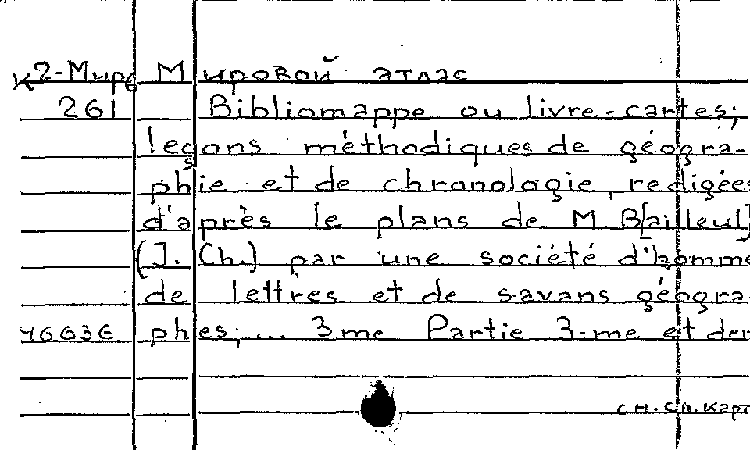 К2-Миро Мировой атлас
261 Bibliomappe ou livre-cartes;
leçons méthodiques de géogra-
phie et de chronologie, redigées
d'après le plans de M B[ailleul]
(J. Ch.) par une société d'homme
de lettres et de savans géogra-
46636 phies;... 3me Partie 3-me et der
сн. сл. карт